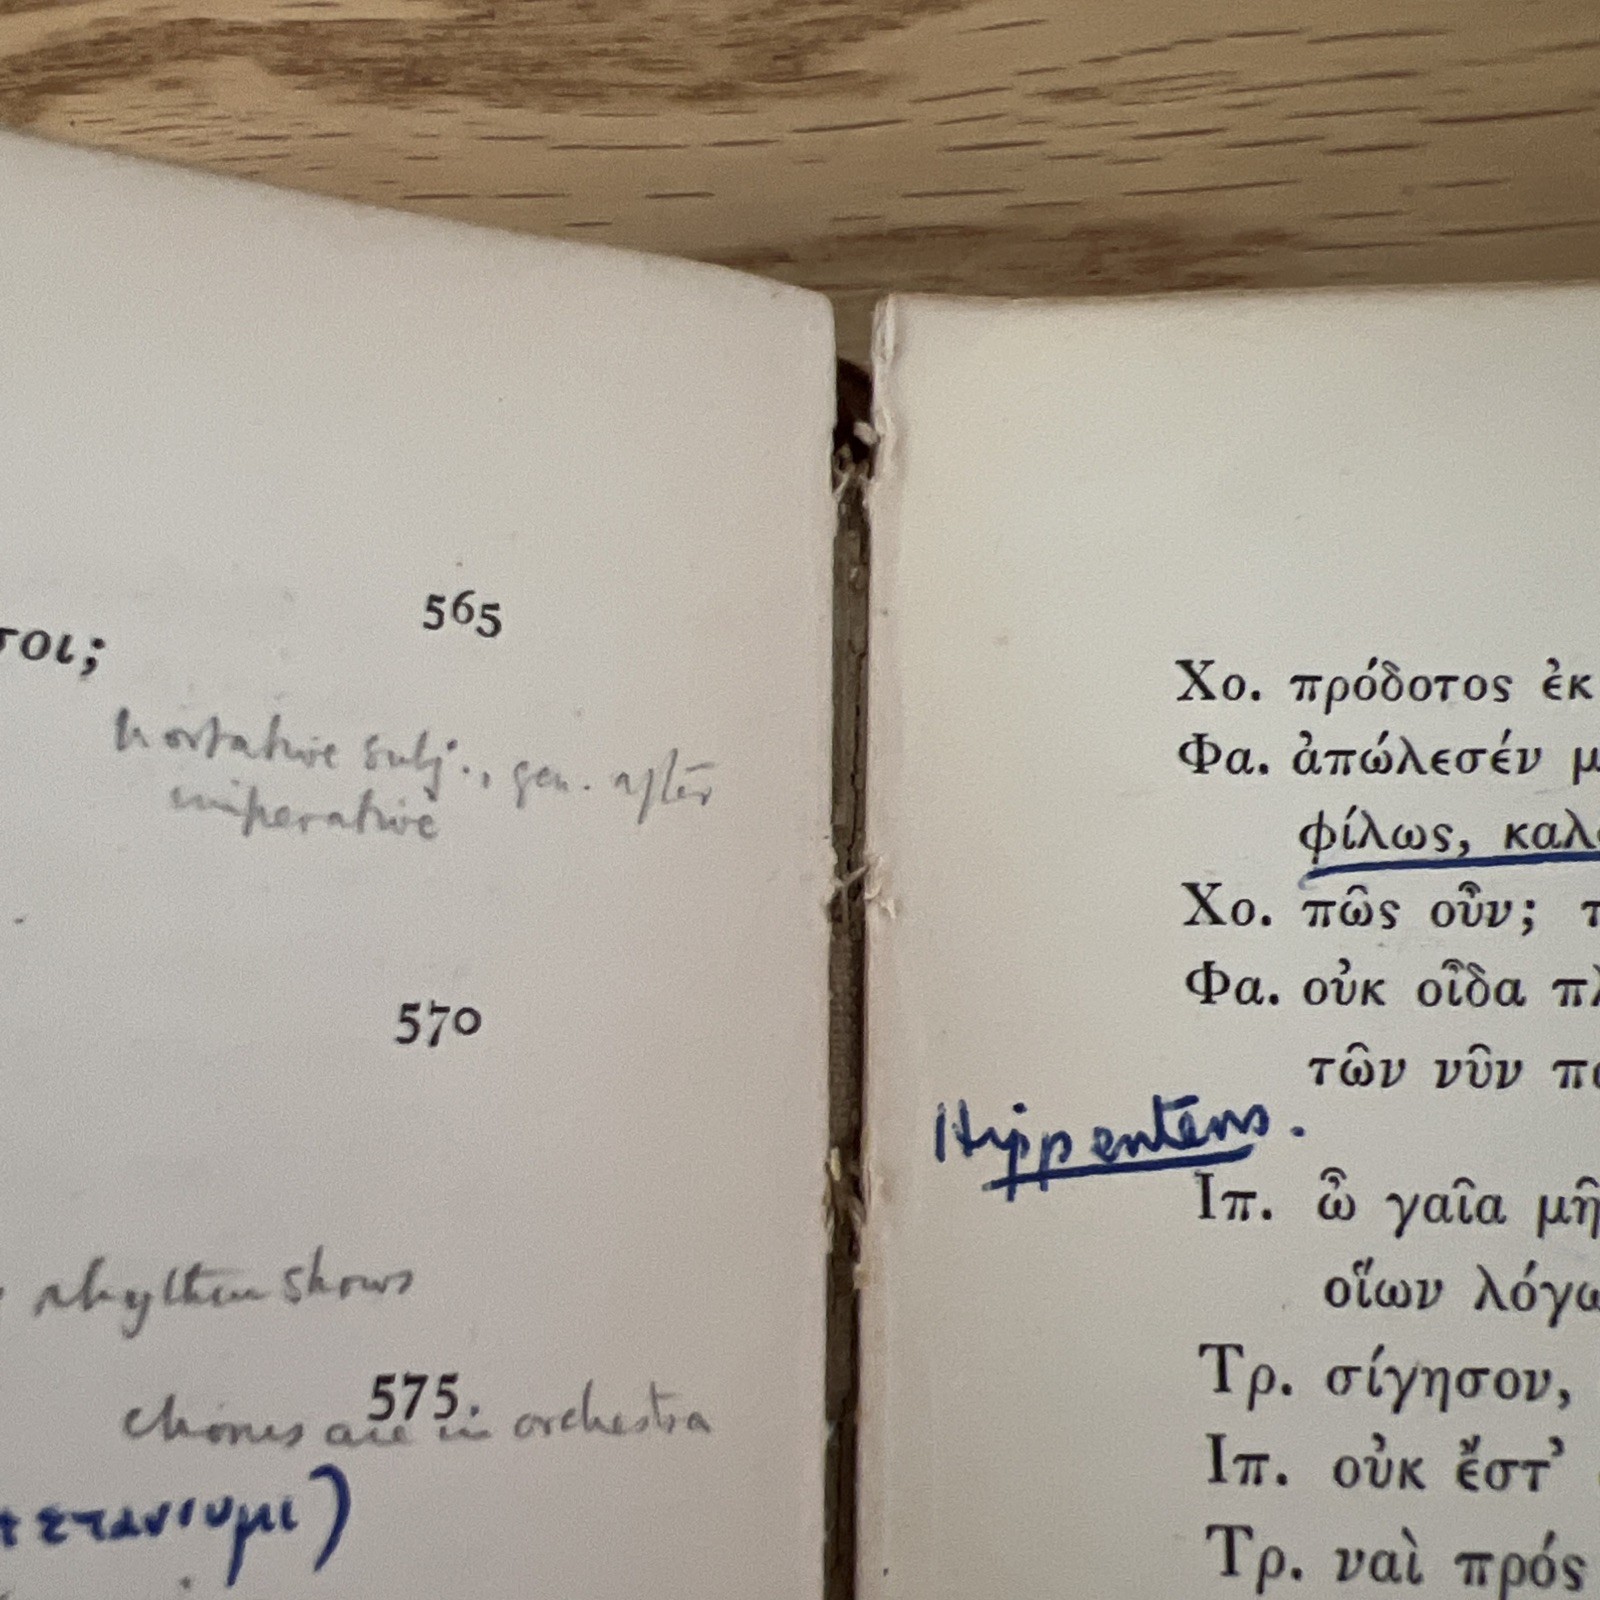 565
τοι;
hortative subj., gen. after
imperative
570
rhythm shows
575.
chorus are in orchestra
Χο. πρόδοτος ἐκ
Φα. ἀπώλεσέν μ
φίλως, καλ
Χο. πῶς οὖν; τ
Φα. οὐκ οἶδα πλ
τῶν νῦν πα
Hipp enters.
Ιπ. ὦ γαῖα μῆ
οἵων λόγω
Τρ. σίγησον,
Ιπ. οὐκ ἔστ᾽
Τρ. ναὶ πρός